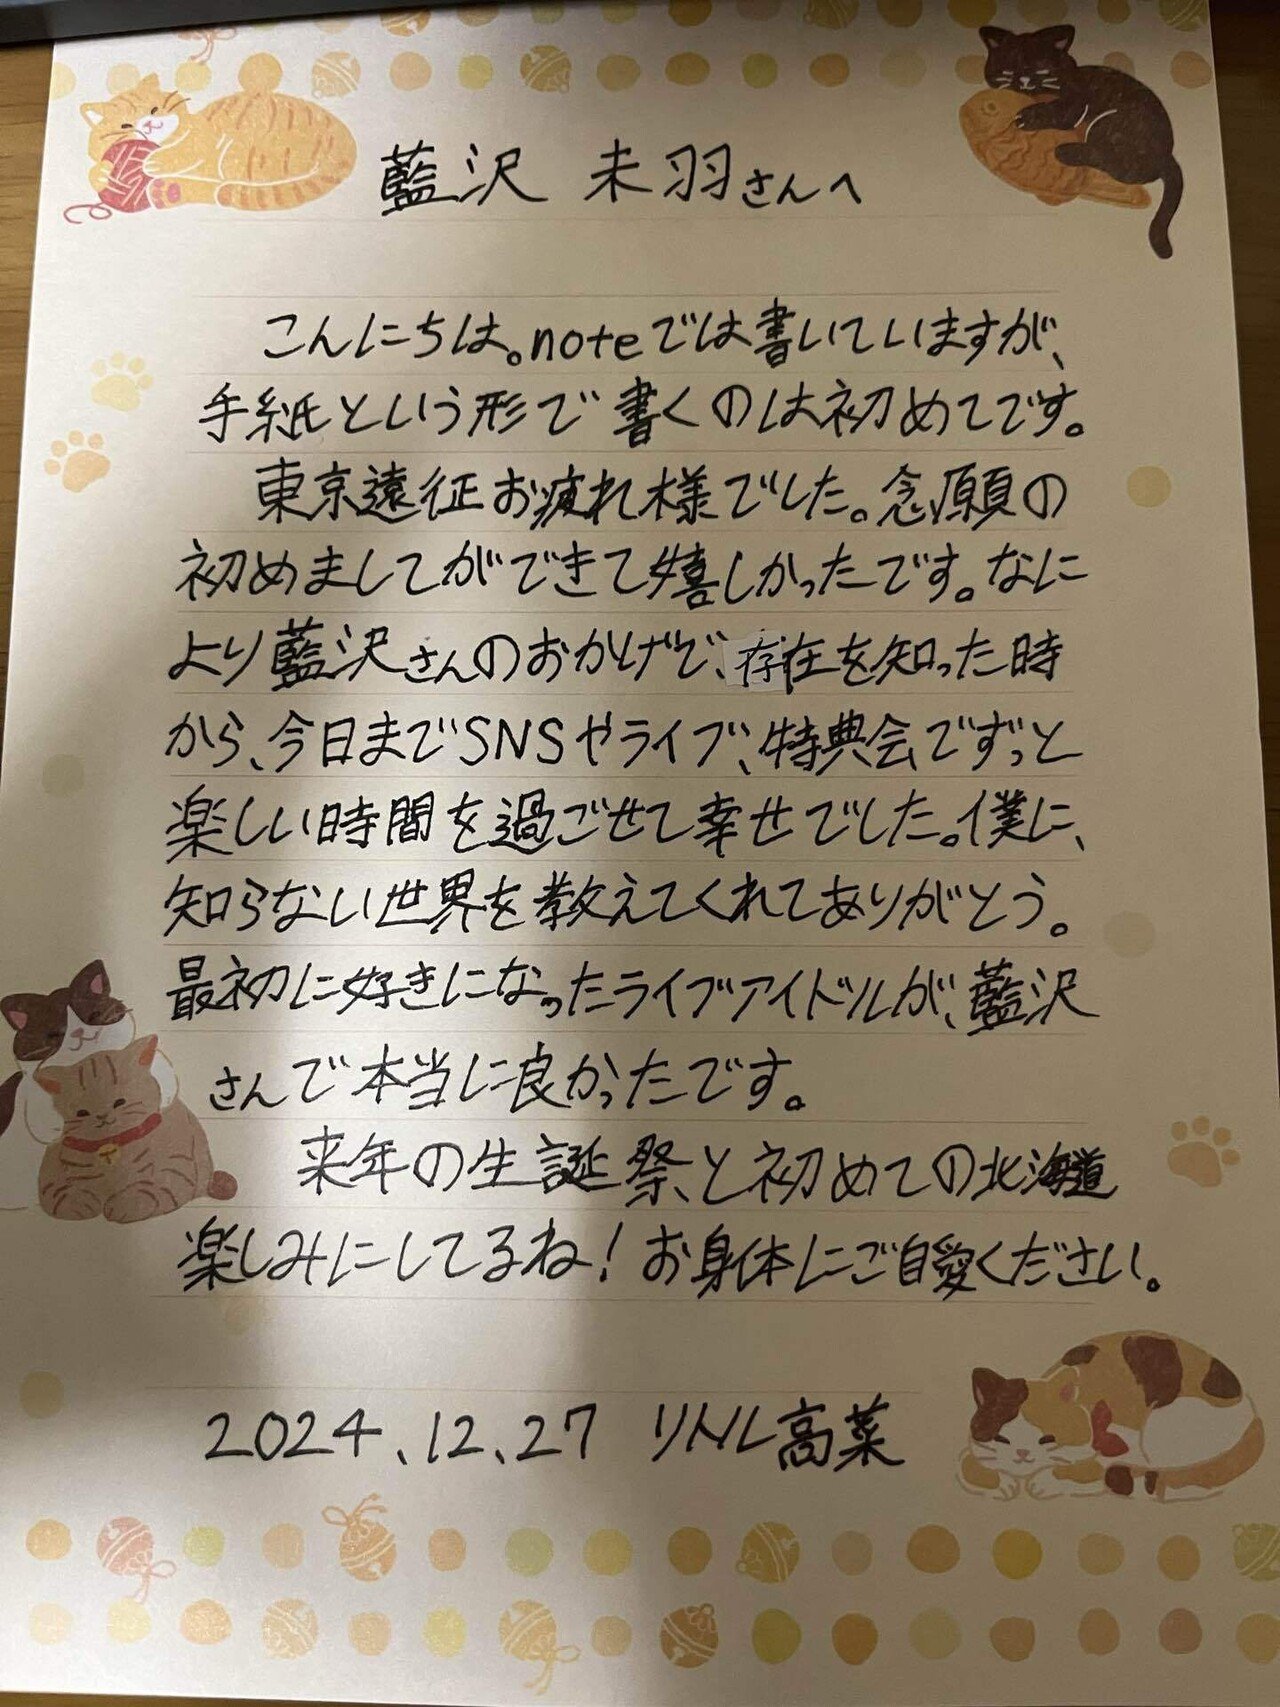 藍沢 未羽さんへ
こんにちは。noteでは書いていますが、
手紙という形で書くのは初めてです。
東京遠征お疲れ様でした。念願の
初めましてができて嬉しかったです。なに
より藍沢さんのおかげで、存在を知った時
から、今日までSNSやライブ、特典会でずっと
楽しい時間を過ごせて幸せでした。僕に、
知らない世界を教えてくれてありがとう。
最初に好きになったライブアイドルが、藍沢
さんで本当に良かったです。
来年の生誕祭と初めての北海道
楽しみにしてるね!お身体にご自愛ください。
2024.12.27 リトル高菜